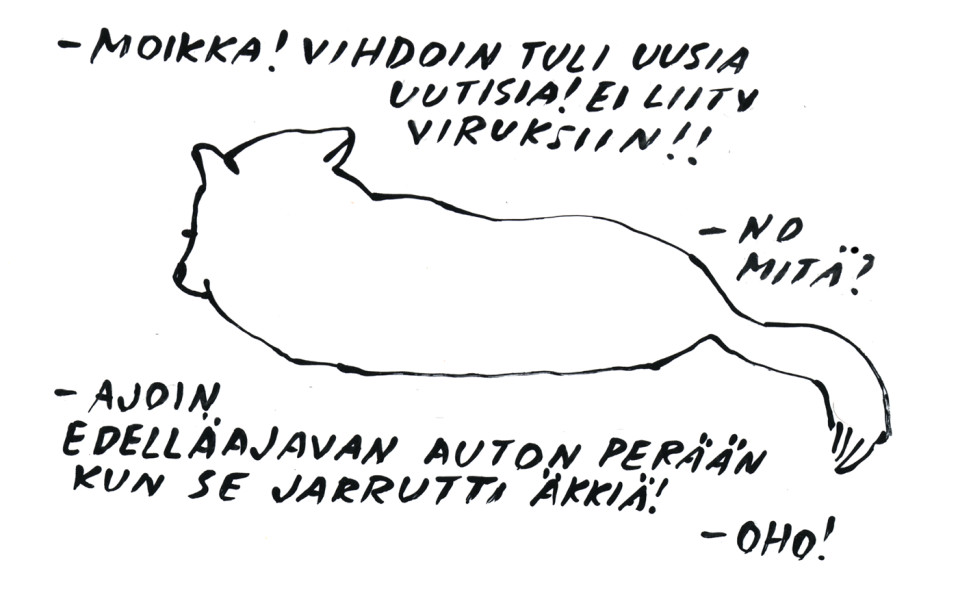 - MOIKKA! VIHDOIN TULI UUSIA
UUTISIA! EI LIITY
VIRUKSIIN!!
- NO
MITÄ?
- AJOIN
EDELLÄAJAVAN AUTON PERÄÄN
KUN SE JARRUTTI ÄKKIÄ!
- OHO!